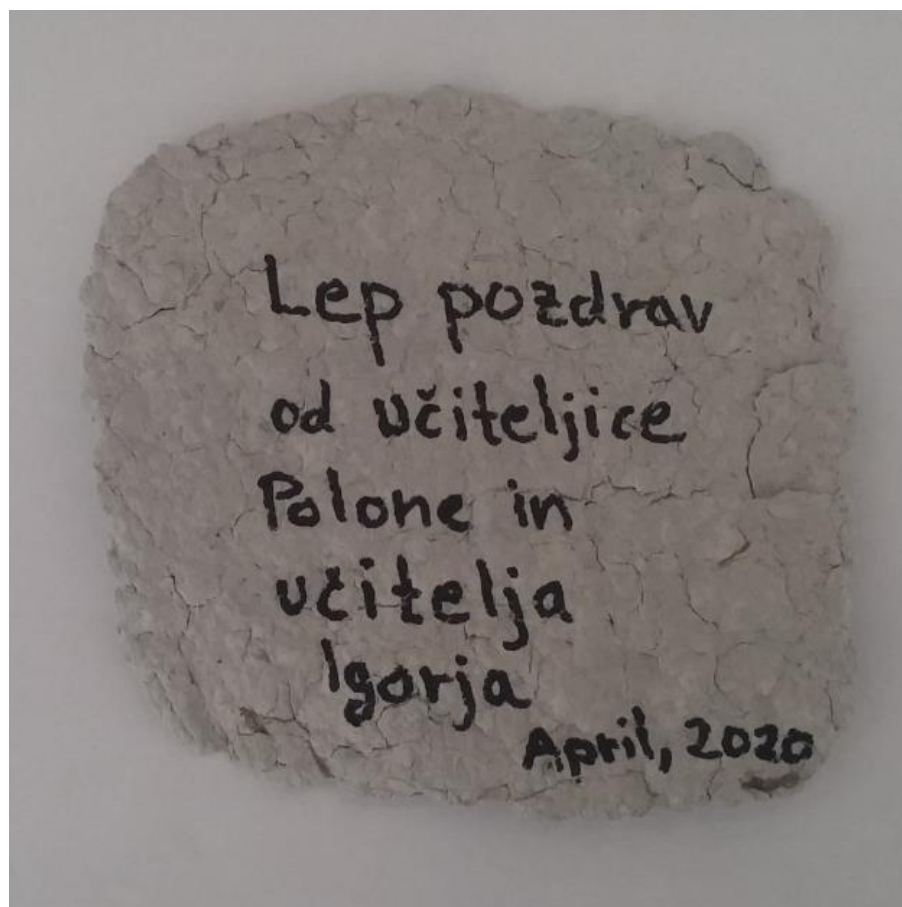 Lep pozdrav
od učiteljice
Polone in
učitelja
Igorja
April, 2020